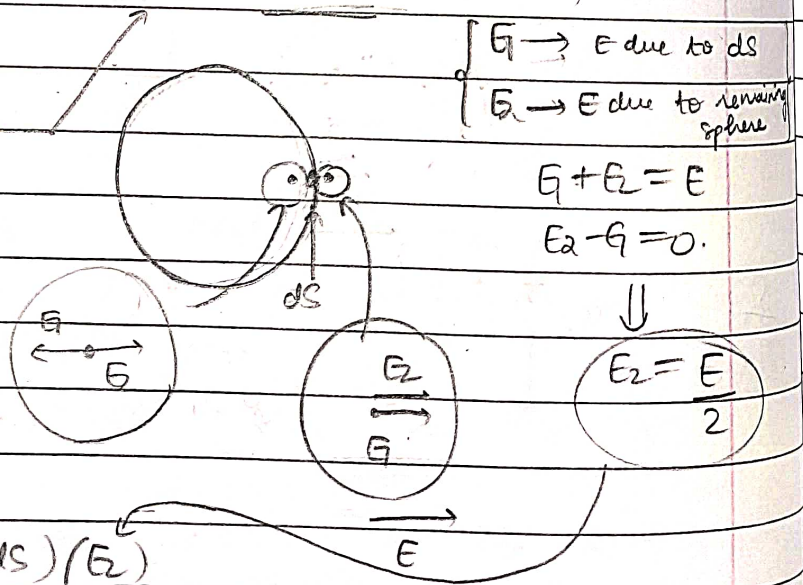 E1 → E due to dS
E2 → E due to remaining
sphere
E1 + E2 = E
E2 - E1 = 0.
⇓
dS
E1
E2
E2
E1
E2 = E/2
E
dS) (E2)